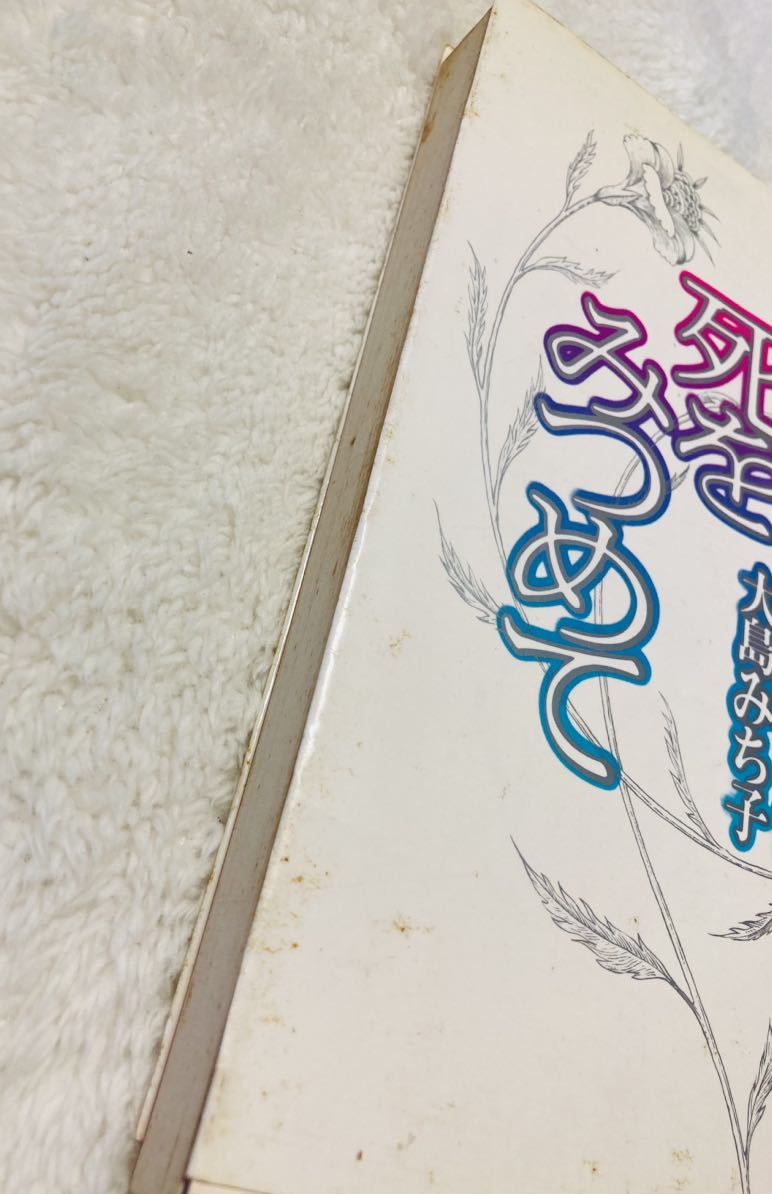 死を
みつめて
大島みち子